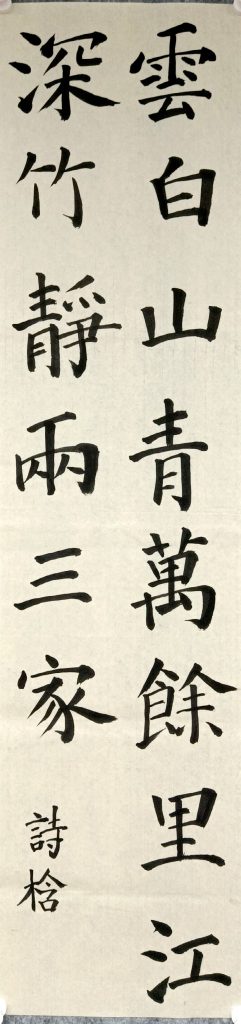 雲白山青萬餘里江
深竹靜兩三家
詩桧